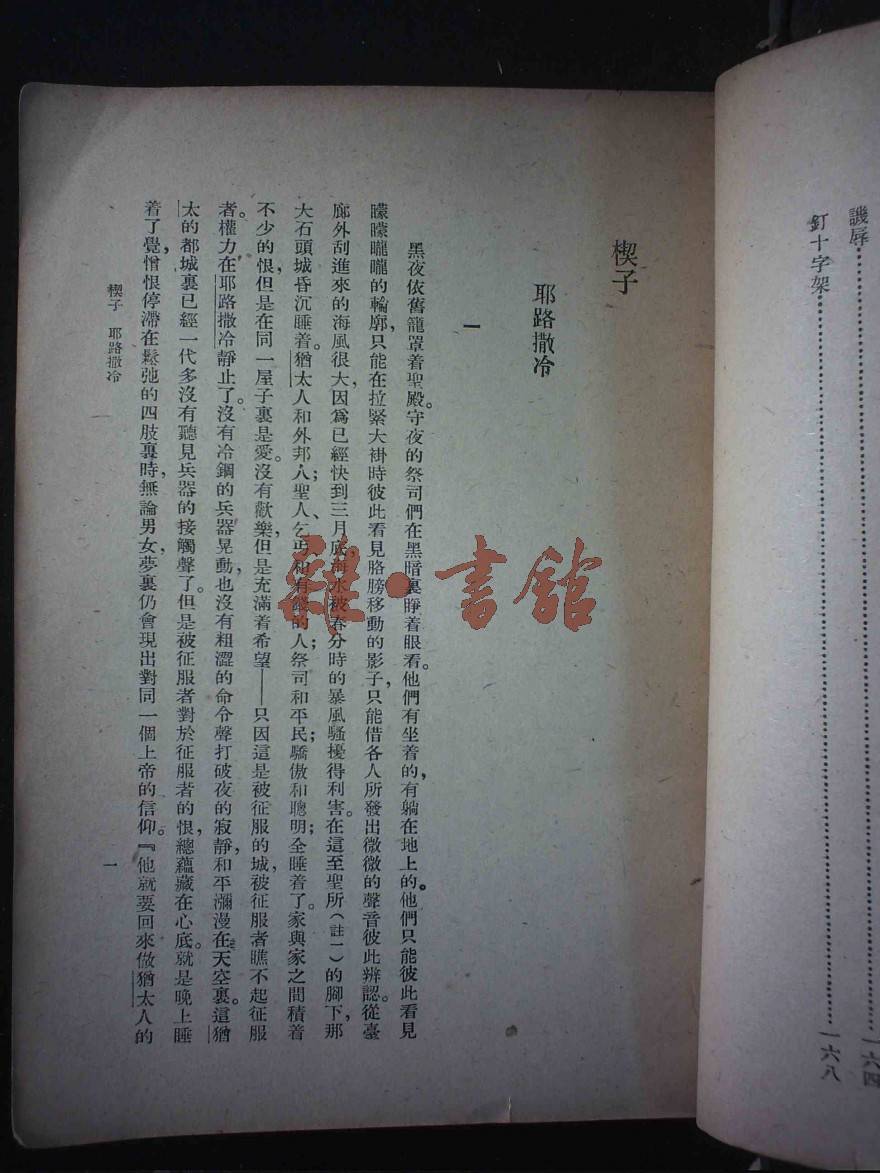 譏辱……………………………一六四
釘十字架……………………………一六八
楔子
耶路撒冷
一
黑夜依舊籠罩着聖殿。守夜的祭司們在黑暗裏睜着眼看。他們有坐着的,有躺在地上的。他們只能彼此看見
矇矇矓矓的輪廓,只能在拉緊大褂時彼此看見胳膀移動的影子,只能借各人所發出微微的聲音彼此辨認。從臺
廊外刮進來的海風很大,因爲已經快到三月底,海水被春分時的暴風騷擾得利害。在這至聖所(註一)的腳下,那
大石頭城昏沉睡着。猶太人和外邦人;聖人、乞丐和有錢的人;祭司和平民;驕傲和聰明;全睡着了。家與家之間積着
不少的恨,但是在同一屋子裏是愛。沒有歡樂,但是充滿着希望——只因這是被征服的城,被征服者瞧不起征服
者。權力在耶路撒冷靜止了。沒有冷鋼的兵器晃動,也沒有粗澀的命令聲打破夜的寂靜,和平瀰漫在天空裏。這猶
太的都城裏已經一代多沒有聽見兵器的接觸聲了。但是被征服者對於征服者的恨,總蘊藏在心底。就是晚上睡
着了覺,憎恨停滯在鬆弛的四肢裏時,無論男女,夢裏仍會現出對同一個上帝的信仰。『他就要回來做猶太人的
楔子 耶路撒冷
一
雜·書館